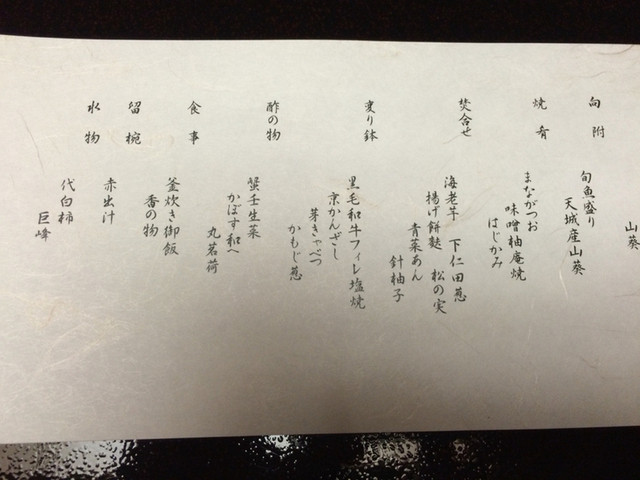 山葵
向附
旬魚盛り
天城産山葵
焼肴
まながつお
味噌柚庵焼
はじかみ
焚合せ
海老芋 下仁田葱
揚げ餅麩 松の実
青菜あん
針柚子
変り鉢
黒毛和牛フィレ塩焼
京かんざし
芽きゃべつ
かもじ葱
酢の物
蟹壬生菜
かぼす和へ
丸茗荷
食事
釜炊き御飯
香の物
留椀
赤出汁
水物
代白柿
巨峰